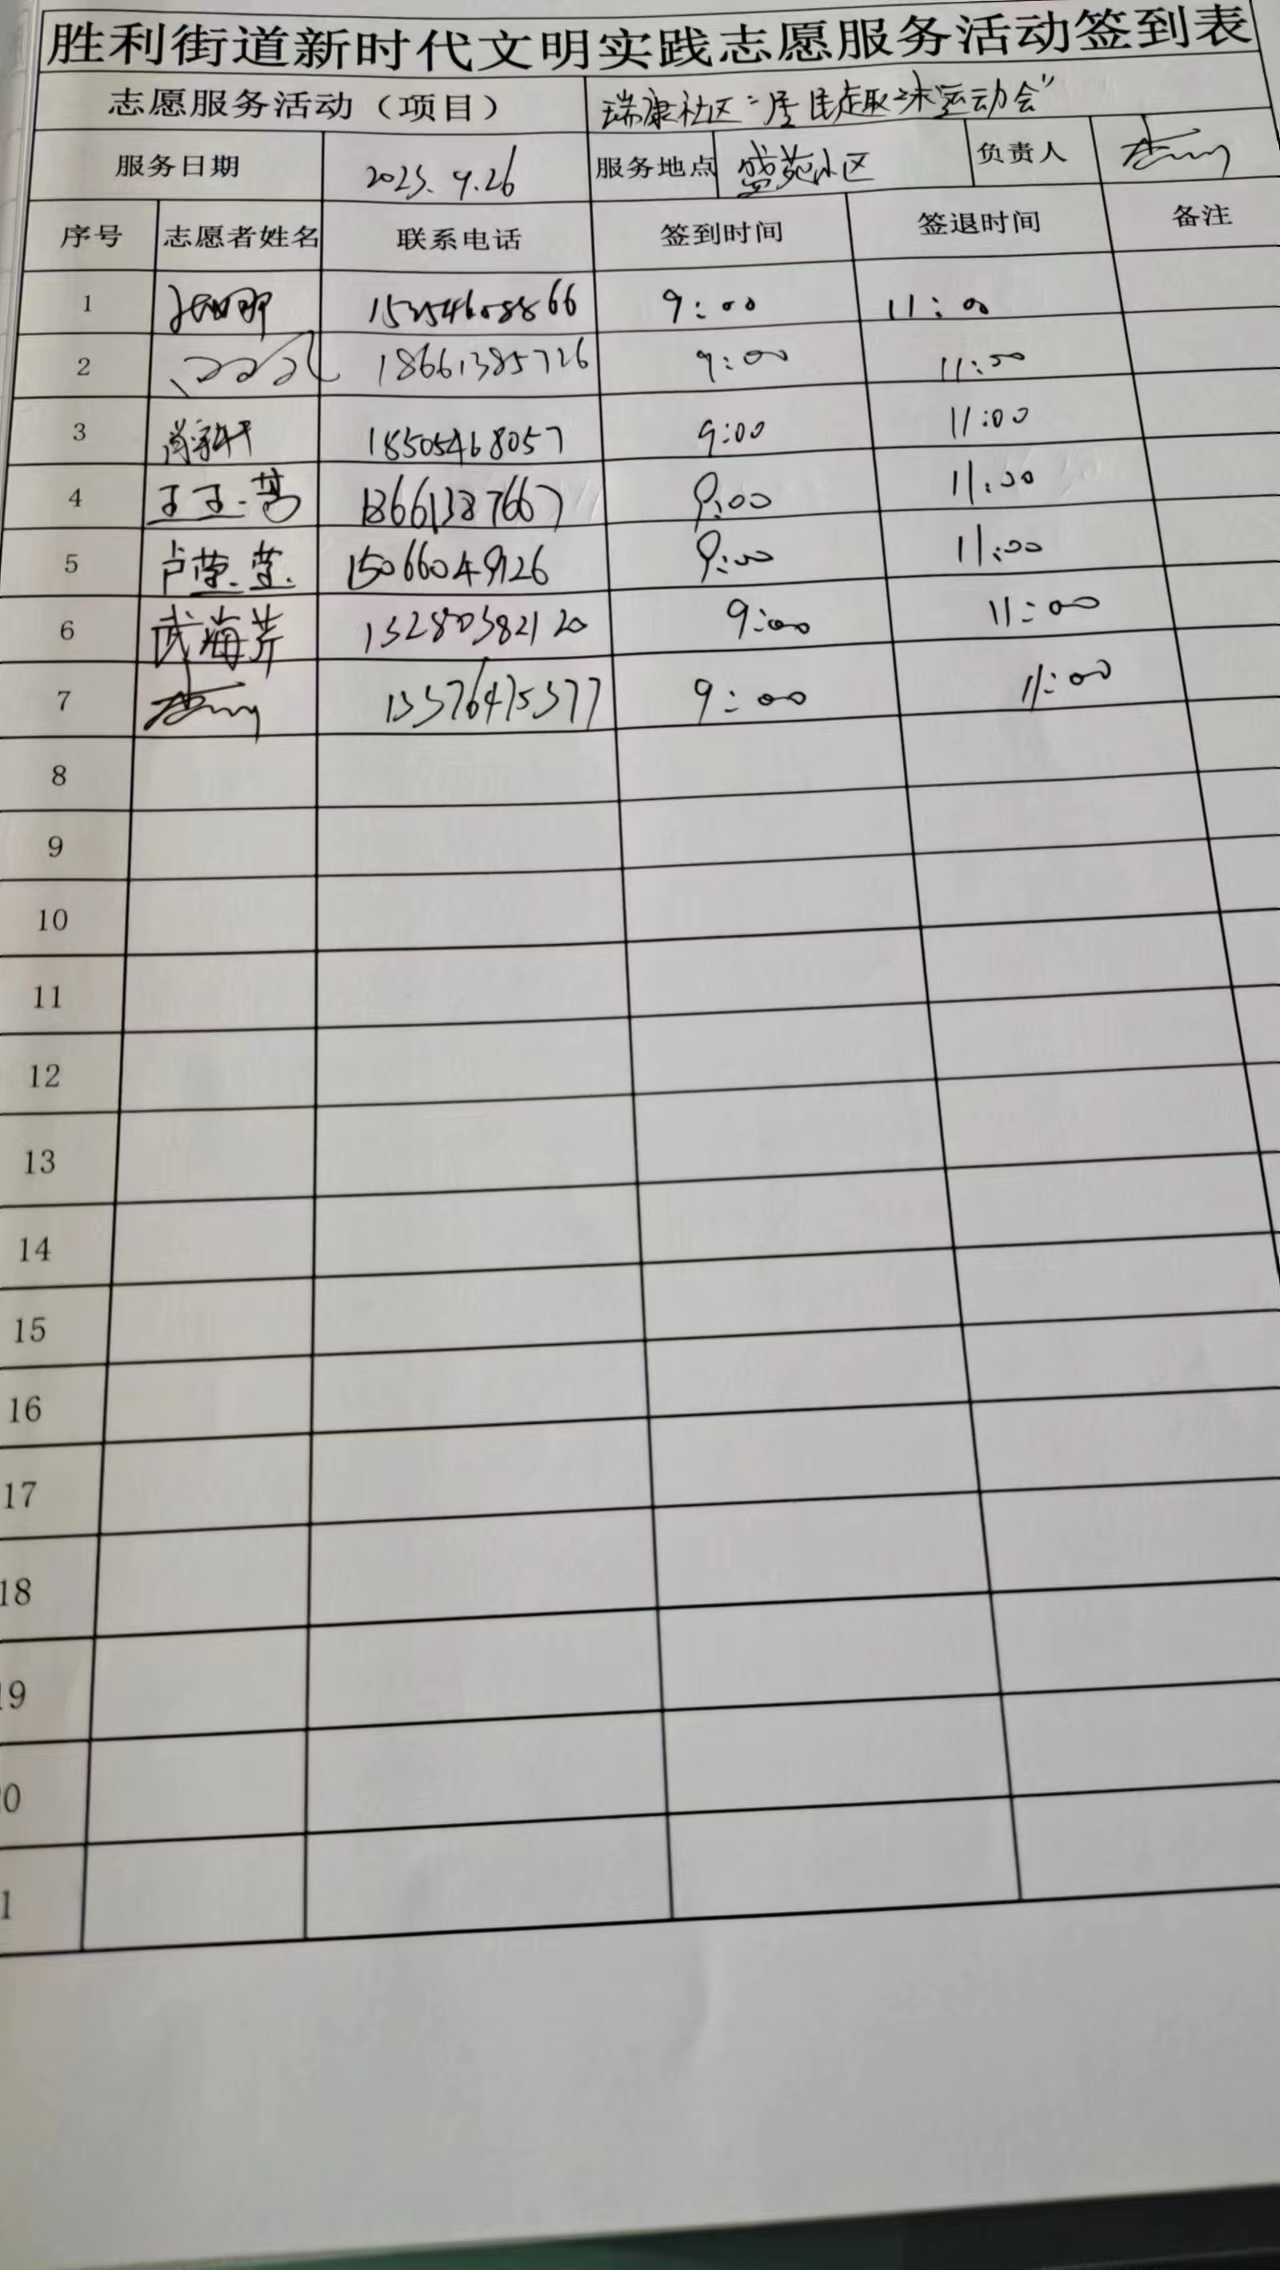 胜利街道新时代文明实践志愿服务活动签到表
志愿服务活动（项目） 瑞康社区“居民趣味运动会”
服务日期 2023.9.26 服务地点 盛苑小区 负责人
序号 志愿者姓名 联系电话 签到时间 签退时间 备注
1 9:00 11:00
2 18661385726 9:00 11:00
3 18505468057 9:00 11:00
4 18661387667 9:00 11:00
5 卢莹莹 15066049126 9:00 11:00
6 武海芹 13280382120 9:00 11:00
7 13376475377 9:00 11:00
8
9
10
11
12
13
14
15
16
17
18
19
20
1